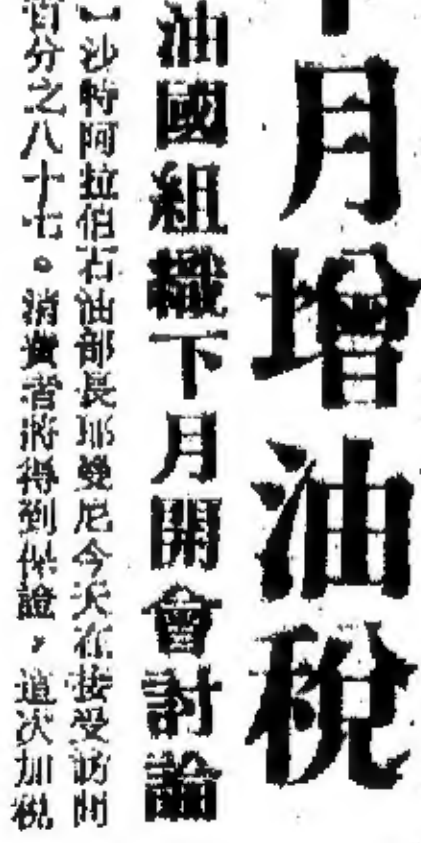 月增油稅
油國組織下月開會討論
】沙特阿拉伯石油部長耶曼尼今天在接受訪問
百分之八十七。消費者將得到保證，這次加稅